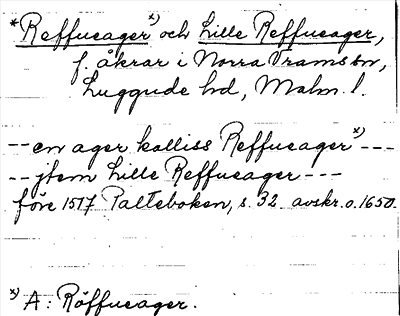 *Reffueager x) och Lille Reffueager,
f. åkrar i Norra Vrams sn,
Luggude hd, Malm. l.
--en ager kalliss Reffueager x) ---
--jtem Lille Reffueager---
före 1517 Palteboken, s. 32. avskr. o. 1650.
x) A: Röffueager.